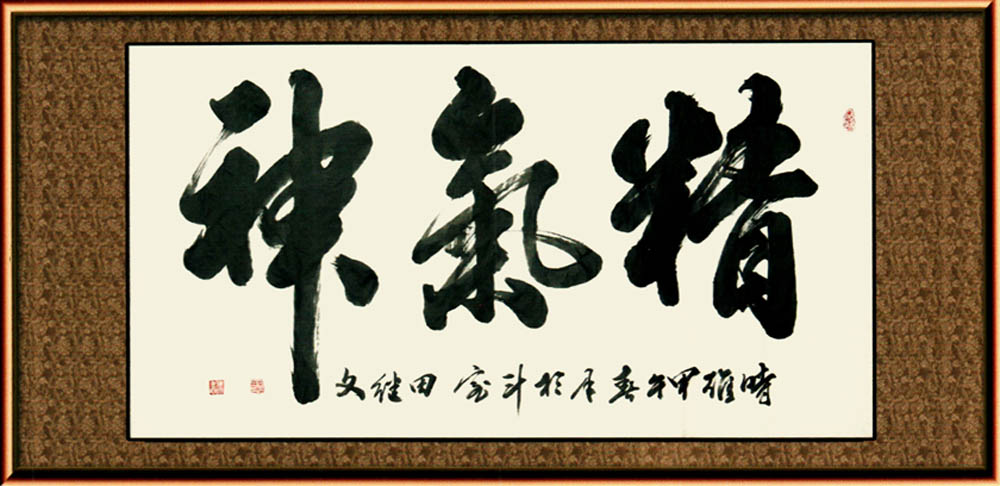 精氣神
時維甲午春月於斗室 田继文